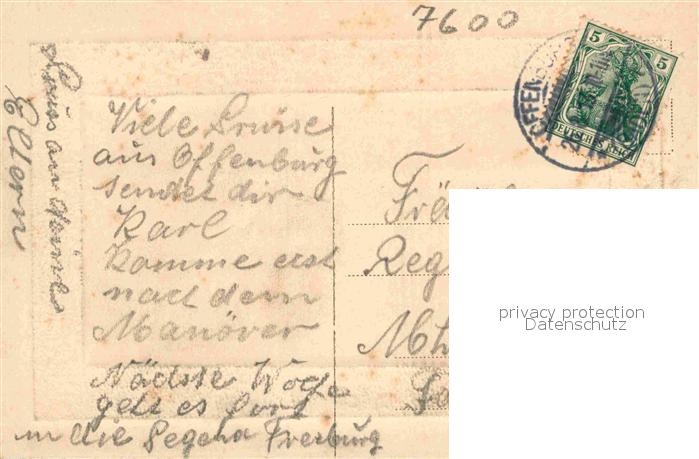 7600
5 5
OFFENBURG
DEUTSCHES REICH
Viele Grüise
aus Offenburg
sendet dir
Karl
komme erst
nach dem
Manöver
Nächste Woche
geht es fort
in die Gegend Freiburg
Gruss an
Eltern
Frä
Reg
privacy protection
Datenschutz